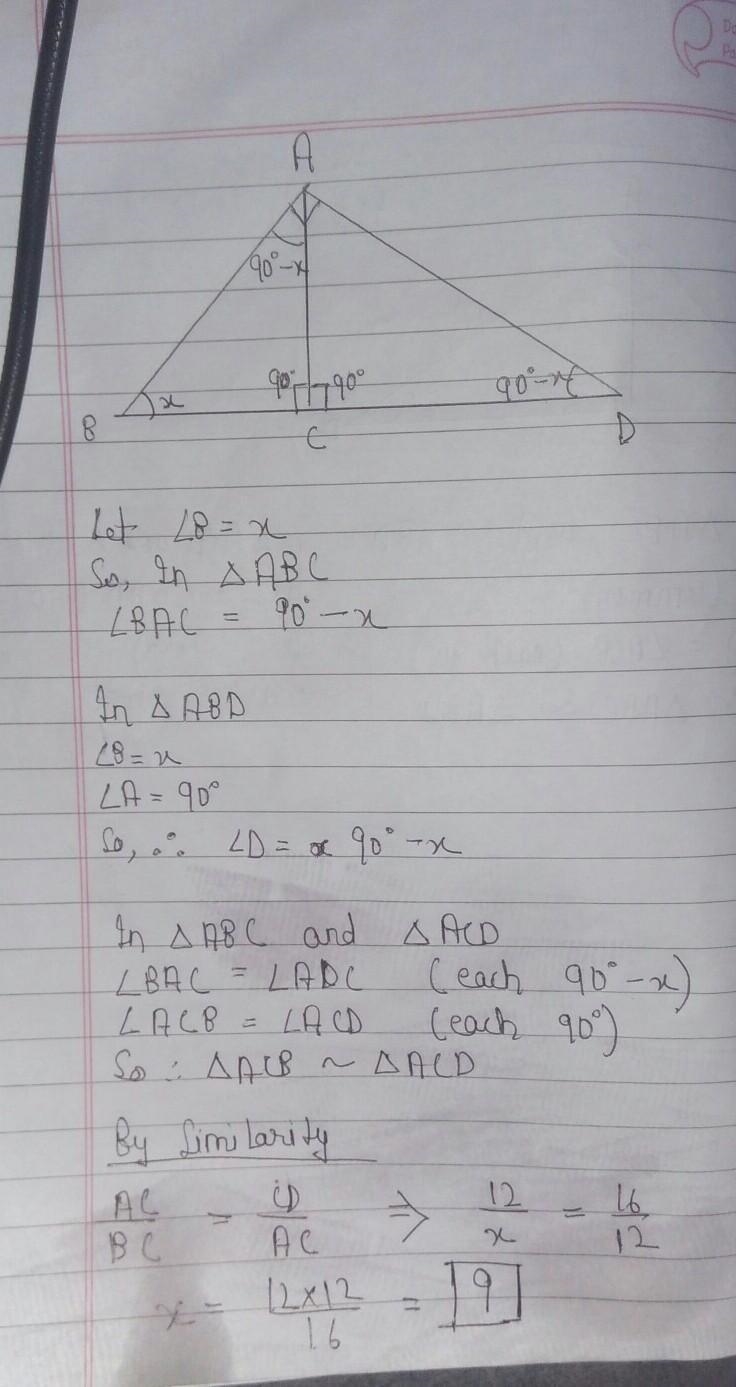 A
90°-x
90° 90° 90°-x
B x C D
Let ∠B = x
So, In △ABC
∠BAC = 90°-x
In △ABD
∠B = x
∠A = 90°
So, ∴ ∠D = 90°-x
In △ABC and △ACD
∠BAC = ∠ADC (each 90°-x)
∠ACB = ∠ACD (each 90°)
So ∴ △ACB ~ △ACD
By Similarity
AC/BC = CD/AC ⇒ 12/x = 16/12
x = 12×12/16 = 9